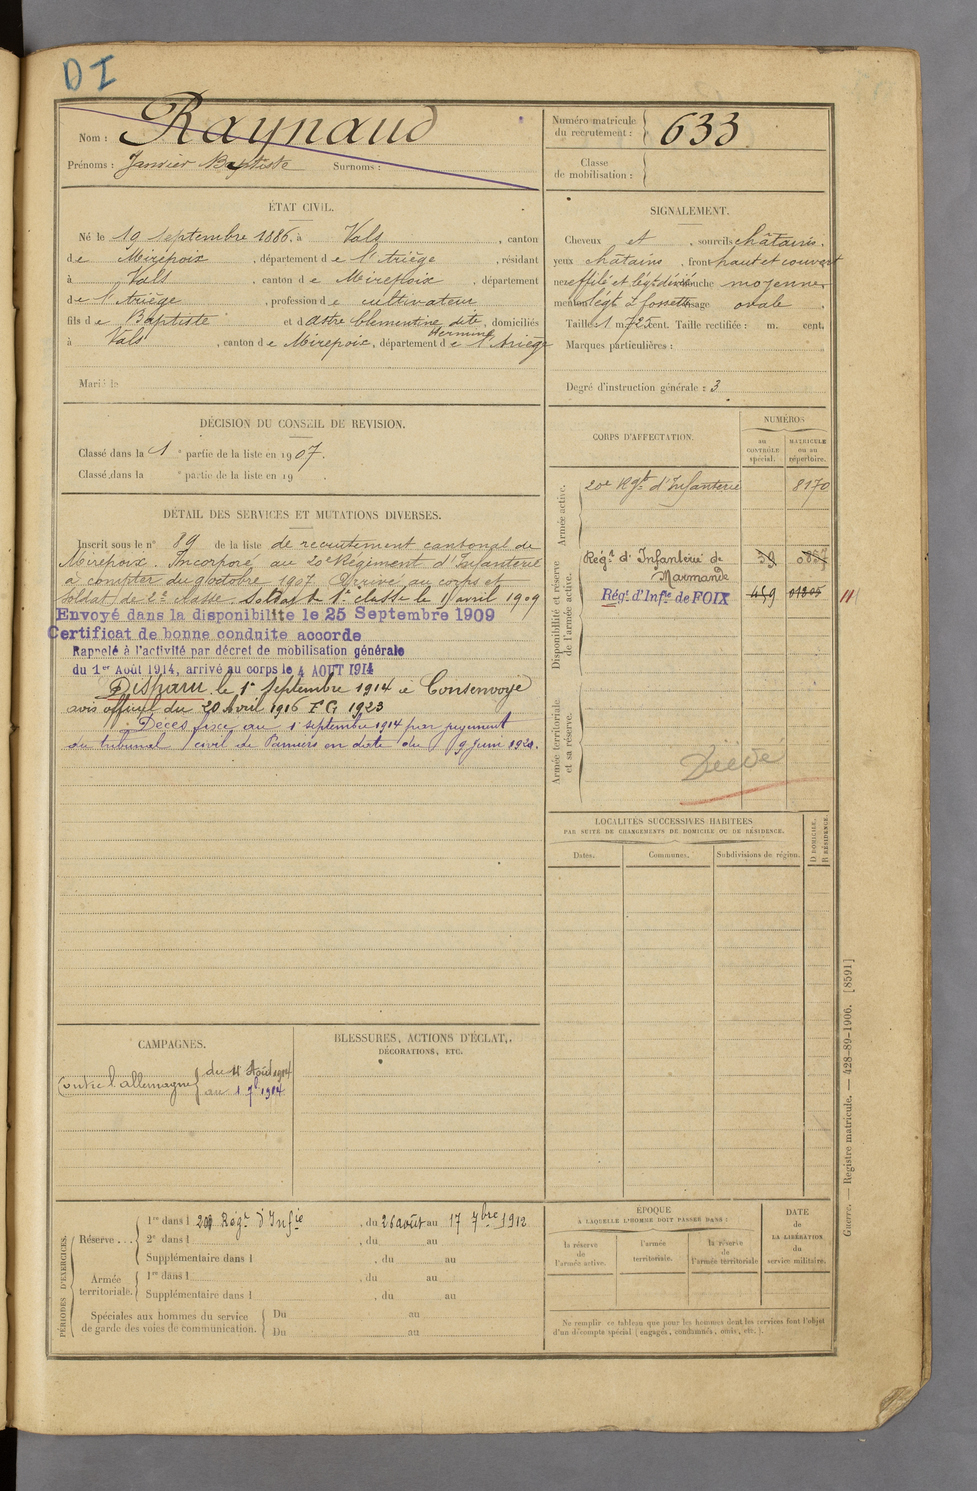 DI
Nom : Raynaud
Prénoms : Janvier Baptiste Surnoms :
Numéro matricule du recrutement : 633
Classe de mobilisation :
ÉTAT CIVIL.
Né le 19 Septembre 1886. à Vals , canton
de Mirepoix , département de l'Ariège , résidant
à Vals , canton de Mirepoix , département
de l'Ariège , profession de cultivateur
fils de Baptiste et d Astre Clementine dite Hermine , domiciliés
à Vals , canton de Mirepoix, département de l'Ariège
Marié le
SIGNALEMENT.
Cheveux et , sourcils châtains.
yeux châtains , front haut et couvert
nez effilé et légt dévié bouche moyenne
menton légt à fossette visage ovale .
Taille 1 m. 72 cent. Taille rectifiée : m. cent.
Marques particulières :
Degré d'instruction générale : 3
DÉCISION DU CONSEIL DE REVISION.
Classé dans la 1e partie de la liste en 1907.
Classé dans la e partie de la liste en 19 .
DÉTAIL DES SERVICES ET MUTATIONS DIVERSES.
Inscrit sous le n° 89 de la liste de recrutement cantonal de
Mirepoix. Incorporé au 20e Régiment d'Infanterie
à compter du 9 octobre 1907. Arrivé au corps et
soldat de 2e classe. Soldat de 1e classe le 11 avril 1909
Envoyé dans la disponibilité le 25 Septembre 1909
Certificat de bonne conduite accordé
Rappelé à l'activité par décret de mobilisation générale
du 1er Août 1914, arrivé au corps le 4 AOUT 1914
Disparu le 1er Septembre 1914 à Consenvoye
avis officiel du 20 Avril 1916 FG 1923
Décès fixé au 1 septembre 1914 par jugement
du tribunal civil de Pamiers en date du 9 juin 1920.
CORPS D'AFFECTATION.
NUMÉROS
au CONTRÔLE spécial.
MATRICULE ou au répertoire.
Armée active.
20e Rgt d'Infanterie 8170
Disponibilité et réserve de l'armée active.
Régt d'Infanterie de Marmande
Régt d'Infie de FOIX 459 01305
Armée territoriale et sa réserve.
LOCALITÉS SUCCESSIVES HABITÉES
PAR SUITE DE CHANGEMENTS DE DOMICILE OU DE RÉSIDENCE.
Dates. Communes. Subdivisions de région. D DOMICILE. R RÉSIDENCE.
CAMPAGNES.
Contre l'allemagne du 4 Août 1914
au 1 7bre 1914
BLESSURES, ACTIONS D'ÉCLAT,
DÉCORATIONS, ETC.
PÉRIODES D'EXERCICES.
Réserve ... 1re dans l 209 Régt d'Infie , du 26 août au 17 7bre 1912
2e dans l , du au
Supplémentaire dans l , du au
Armée territoriale. 1re dans l , du au
Supplémentaire dans l , du au
Spéciales aux hommes du service de garde des voies de communication. Du au
Du au
ÉPOQUE
À LAQUELLE L'HOMME DOIT PASSER DANS :
la réserve de l'armée active.
l'armée territoriale.
la réserve de l'armée territoriale
DATE de LA LIBÉRATION du service militaire.
Ne remplir ce tableau que pour les hommes dont les services font l'objet
d'un décompte spécial (engagés, condamnés, omis, etc.).
Guerre. — Registre matricule. — 428-89-1906. [8591]